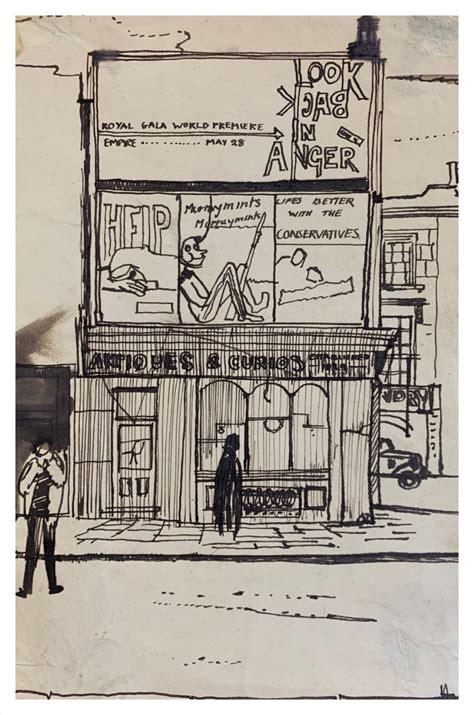 LOOK
BACK
IN
ANGER
ROYAL GALA WORLD PREMIERE
EMPIRE .......... MAY 28
HELP
Murraymints
Murraymints
LIFES BETTER
WITH THE
CONSERVATIVES.
ANTIQUES & CURIOS
NDRY